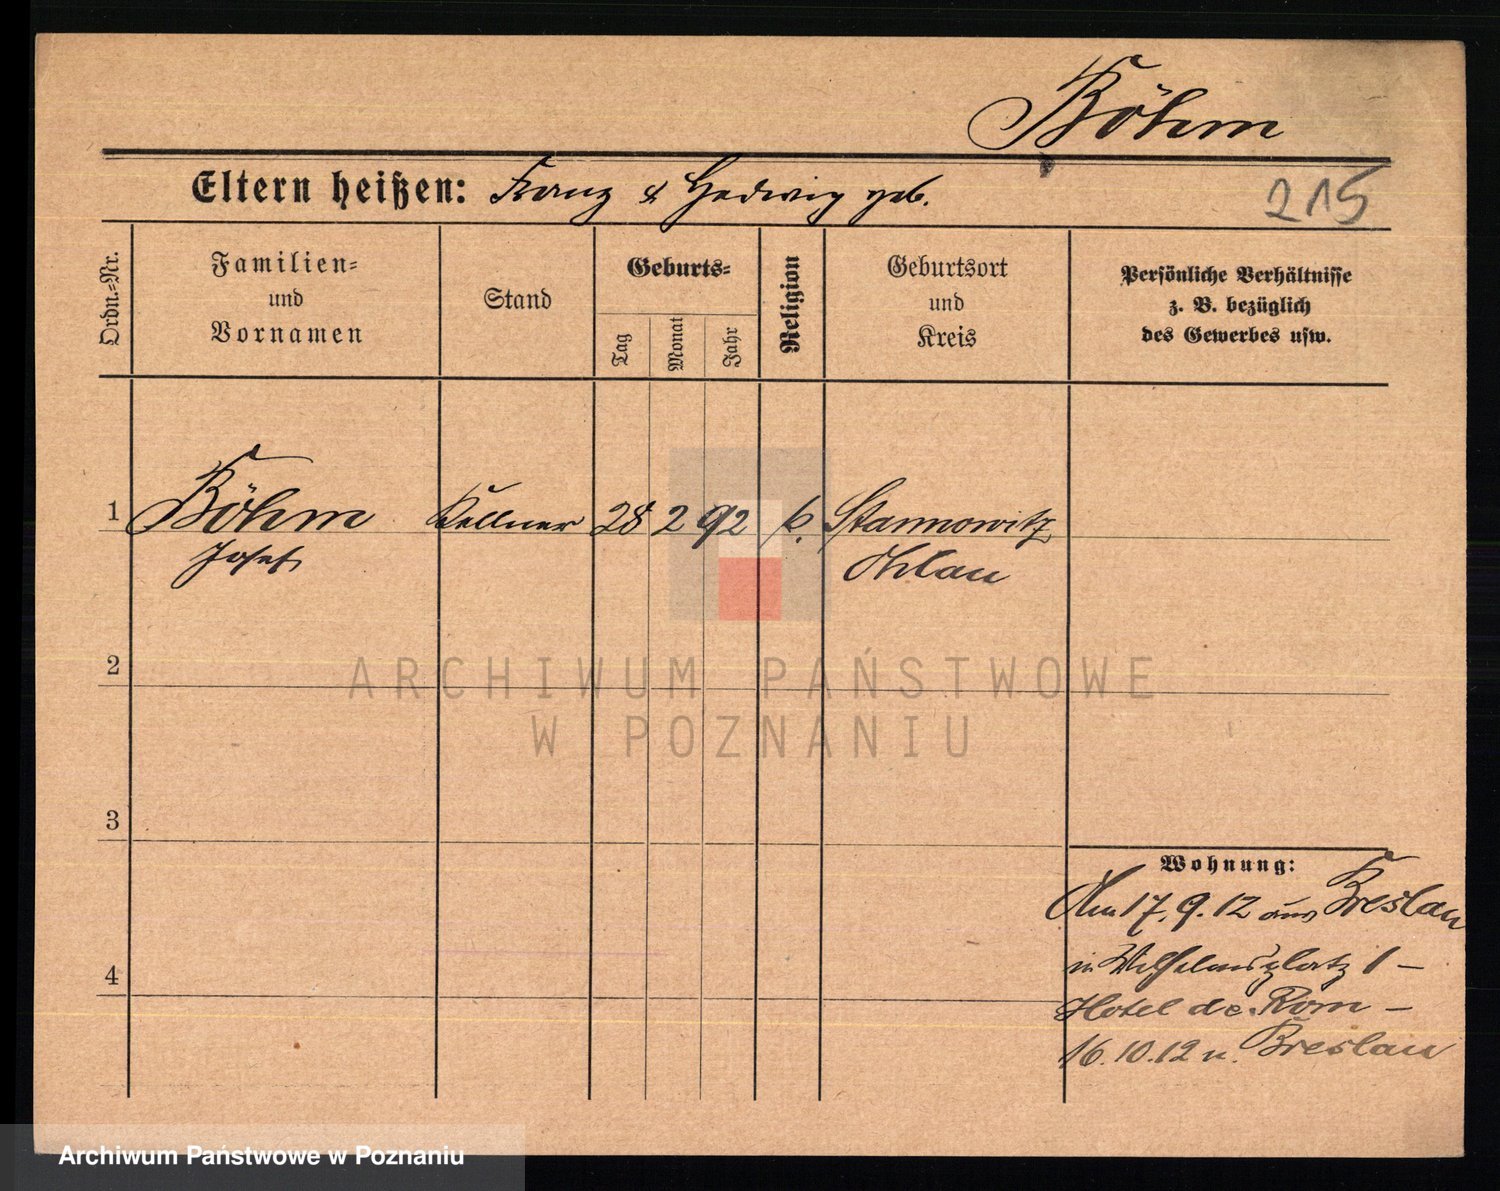 Böhm
Eltern heißen: Franz & Hedwig geb.
215
Ordn.=Nr.
Familien=
und
Vornamen
Stand
Geburts=
Tag
Monat
Jahr
Religion
Geburtsort
und
Kreis
Persönliche Verhältnisse
z. B. bezüglich
des Gewerbes usw.
1 Böhm Kellner 28 2 92 k. Stannowitz
Josef Ohlau
2
ARCHIWUM PAŃSTWOWE
W POZNANIU
3
Wohnung:
Am 17.9.12 aus Breslau
in Wilhelmsplatz 1 –
4
Hotel de Rom –
16.10.12 n. Breslau
Archiwum Państwowe w Poznaniu